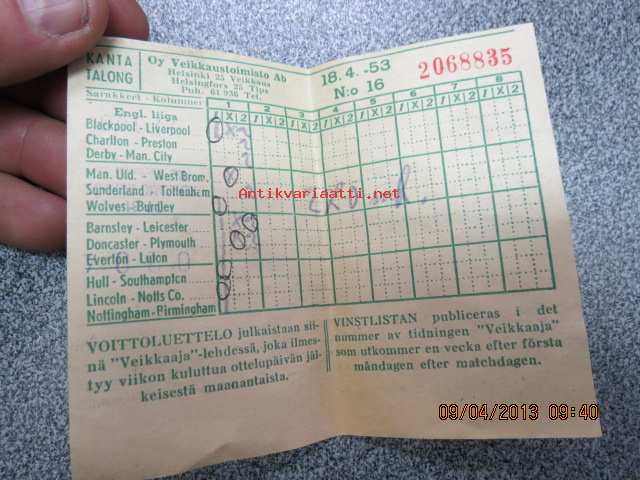 KANTA
TALONG
Oy Veikkaustoimisto Ab
Helsinki 25 Veikkaus
Helsingfors 25 Tips
Puh. 61 936 Tel.
18.4. -53
N:o 16
2068835
Sarakkeet - Kolumner
1 2 3 4 5 6 7 8
Engl. liiga
1 X 2 1 X 2 1 X 2 1 X 2 1 X 2 1 X 2 1 X 2 1 X 2
Blackpool - Liverpool
Charlton - Preston
Derby - Man. City
Man. Utd. - West Brom.
Sunderland - Tottenham
Wolves - Burnley
Barnsley - Leicester
Doncaster - Plymouth
Everton - Luton
Hull - Southampton
Lincoln - Notts Co.
Nottingham - Birmingham
Antikvariaatti.net
VOITTOLUETTELO julkaistaan sii-
nä "Veikkaaja"-lehdessä, joka ilmes-
tyy viikon kuluttua ottelupäivän jäl-
keisestä maanantaista.
VINSTLISTAN publiceras i det
nummer av tidningen "Veikkaaja"
som utkommer en vecka efter första
måndagen efter matchdagen.
09/04/2013 09:40